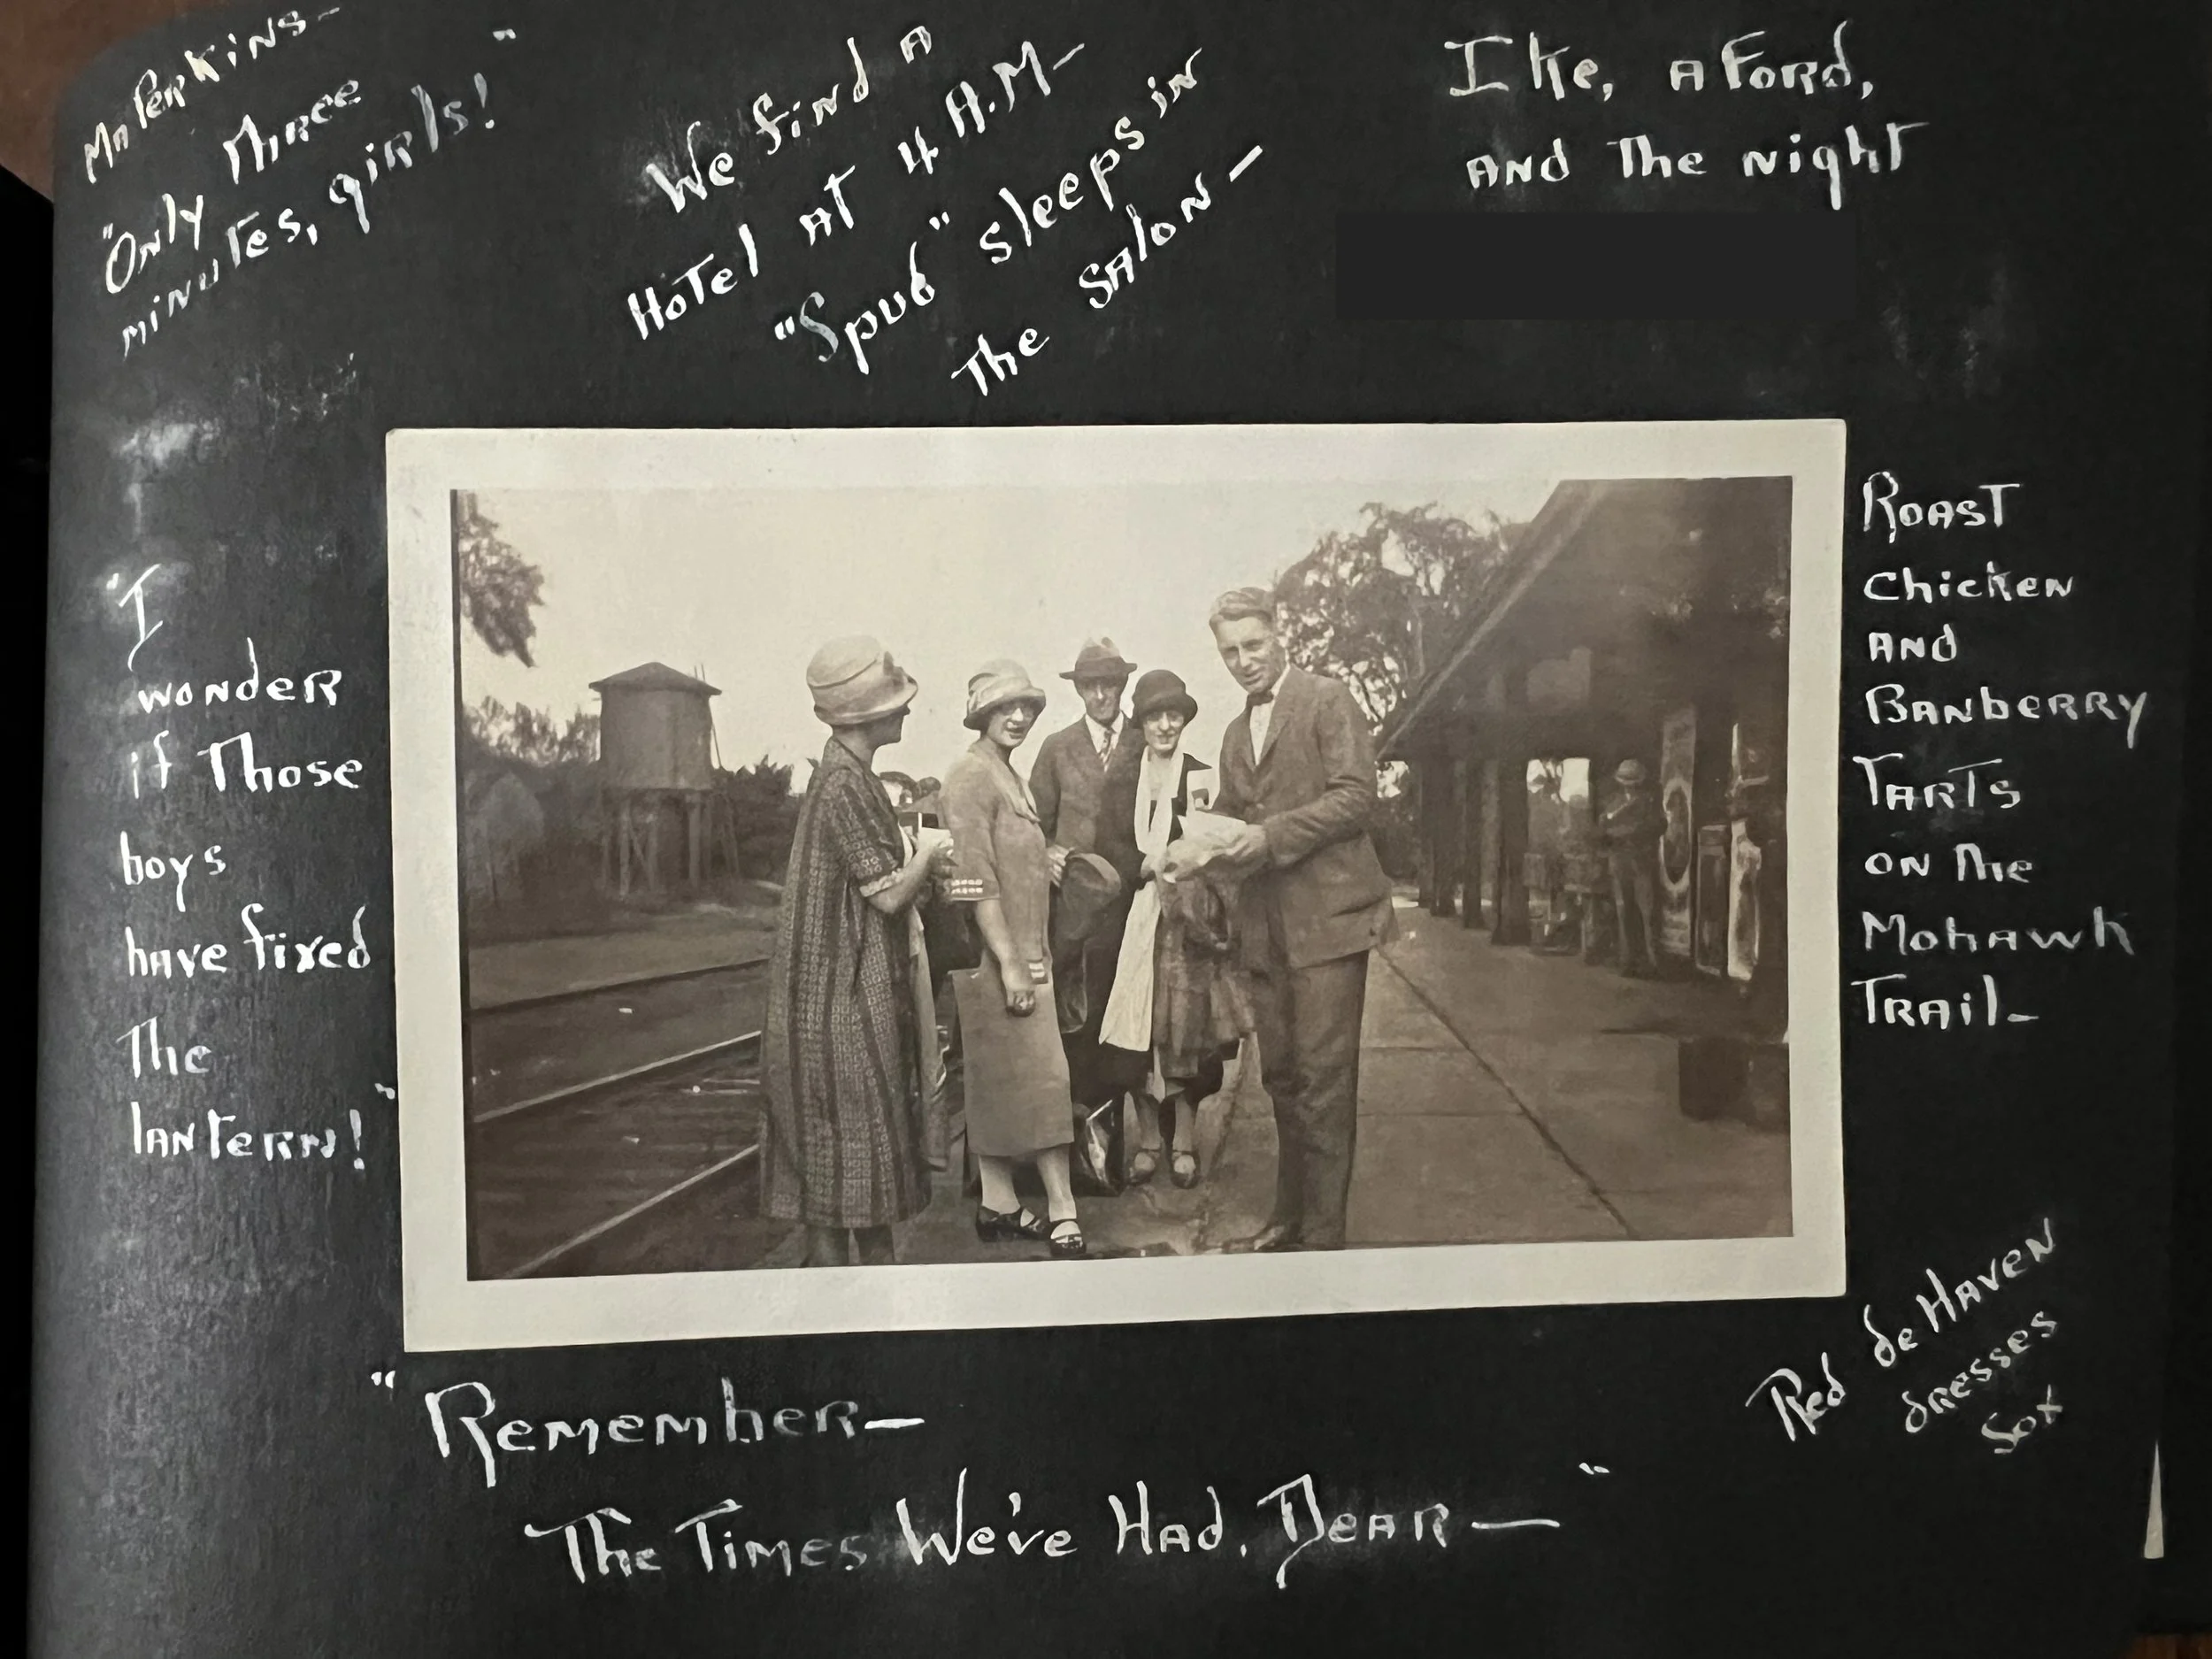 Ma Perkins—
"Only Three
minutes, girls!"
We find a
Hotel at 4 A.M—
"Spub" sleeps in
The salon—
Ike, a Ford,
and The night
"I
wonder
if Those
boys
have fixed
The
lantern!"
Roast
Chicken
and
Banberry
Tarts
on The
Mohawk
Trail—
Red de Haven
dresses
"Remember—
The Times We've Had, Dear—"